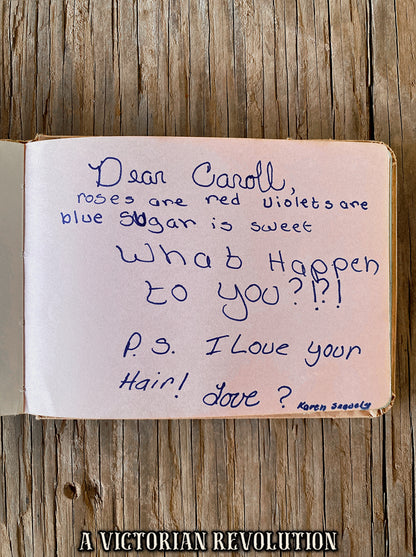 Dear Caroll,
roses are red violets are
blue Sugar is sweet
What Happen
to you?!?!
P.S. I Love your
Hair! Love ?
Karen
A VICTORIAN REVOLUTION